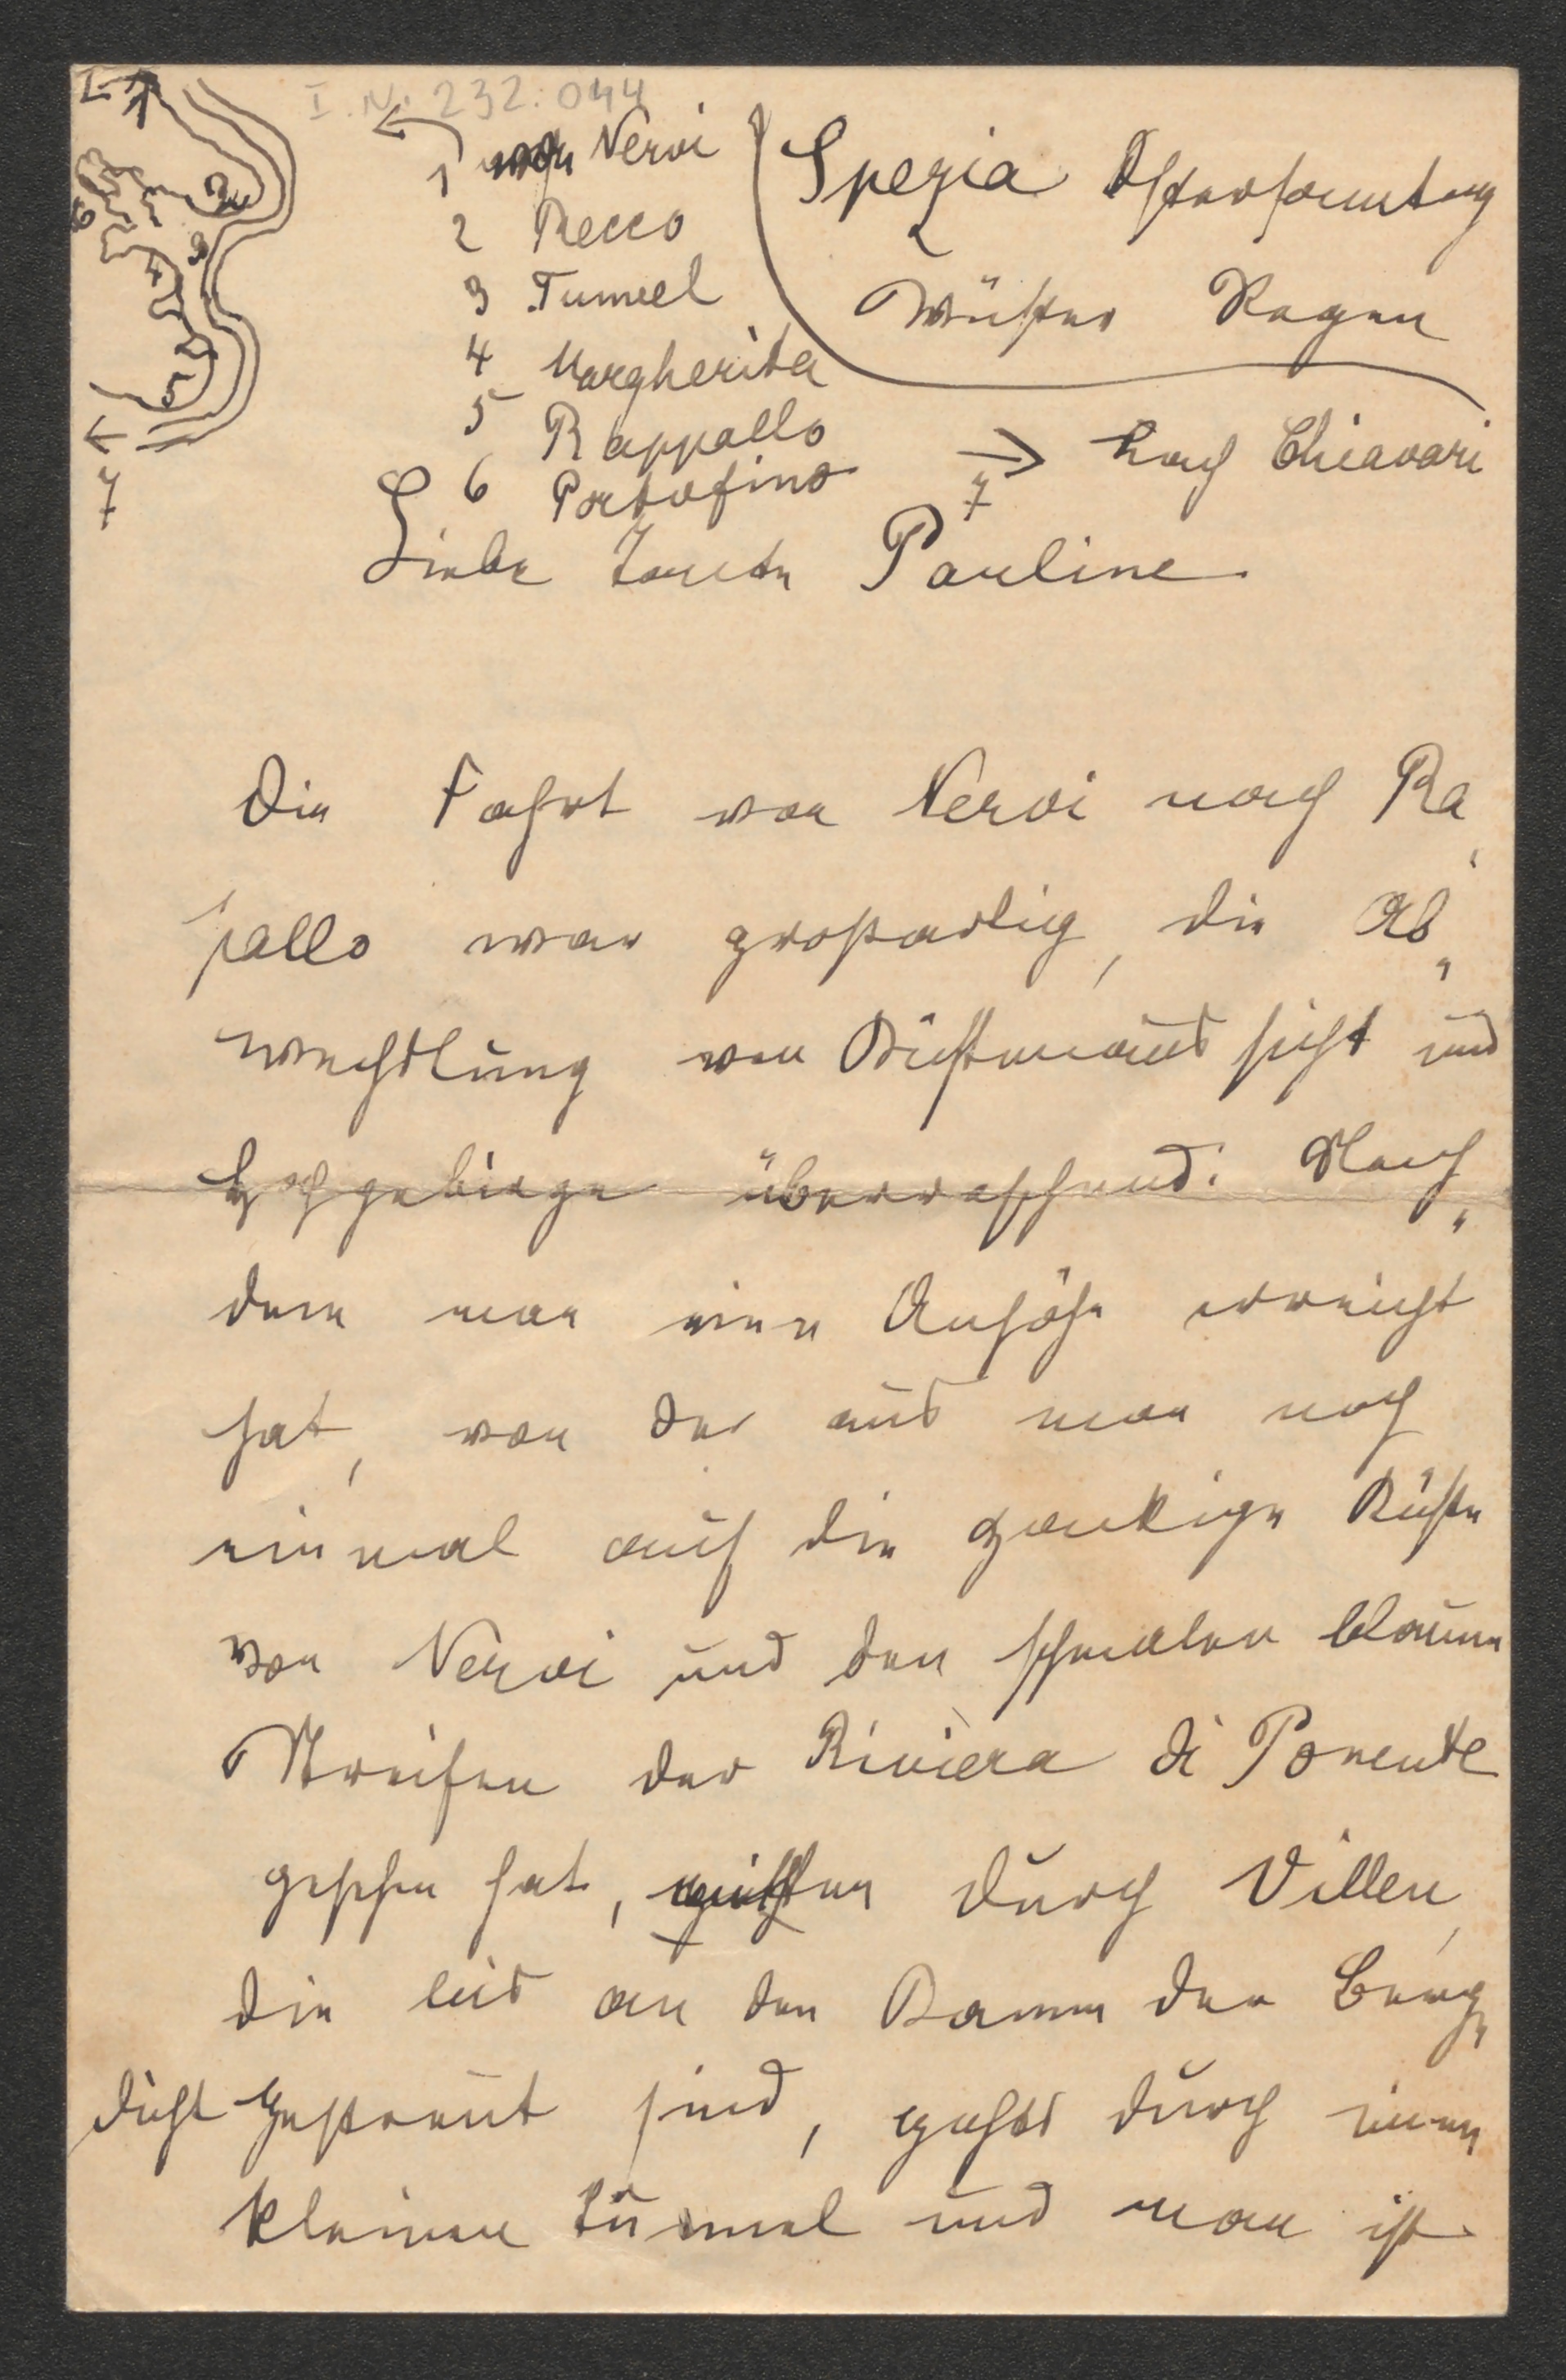 I. N. 232.044
1 von Nervi
2 Recco
3 Tunnel
4 Margherita
5 Rappallo
6 Portofino
7
Spezia Ostersonntag
Wüster Regen
→ Nach Chiavari
7
Liebe Tante Pauline
Die Fahrt von Nervi nach Ra-
pallo war großartig, die Ab-
wechslung von Küstenaussicht und
Hochgebirge überraschend: Nach-
dem man eine Anhöhe erreicht
hat, von der aus man noch
einmal auf die zackige Küste
von Nervi und den schmalen blauen
Streifen der Riviera di Ponente
gesehen hat, mitten durch Villen,
die bis an den Kamm der Berge
dicht gestreut sind, gehts durch einen
kleinen Tunnel und man ist